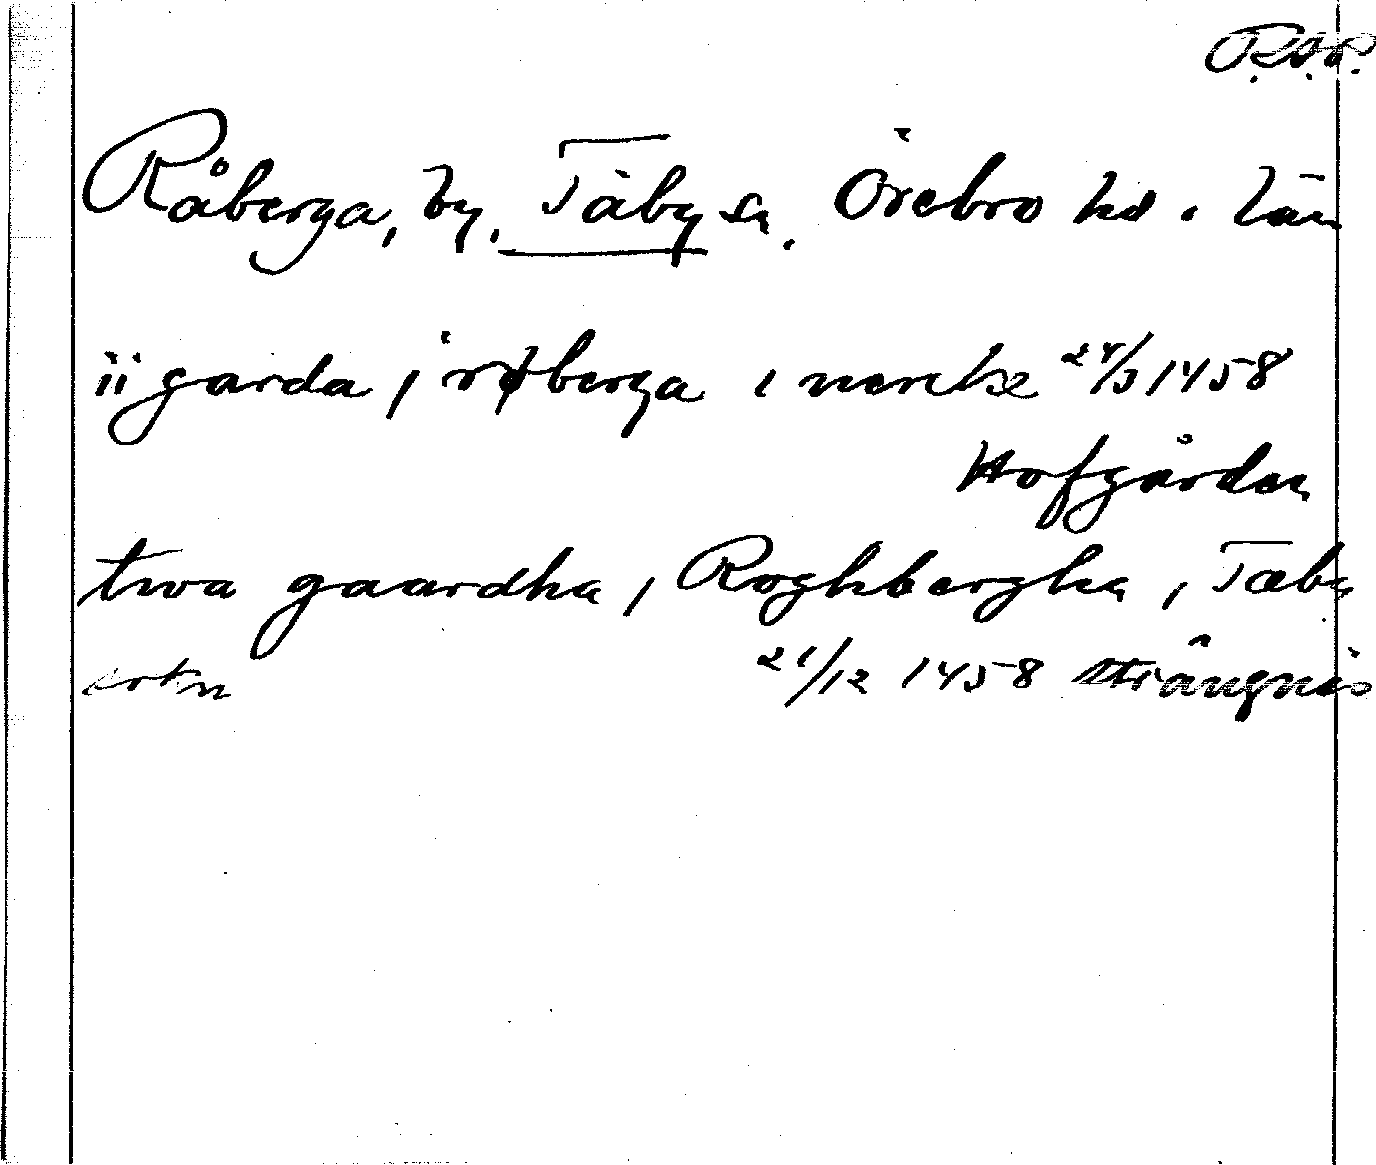 R.A.P.
Råberga, by, Täby sn. Örebro hd. län
ii garda i røberga i nerike 24/3 1458
Hofgården
twa gaardha i Roghbergha i Tæby
sokn 21/12 1458 Strängnäs